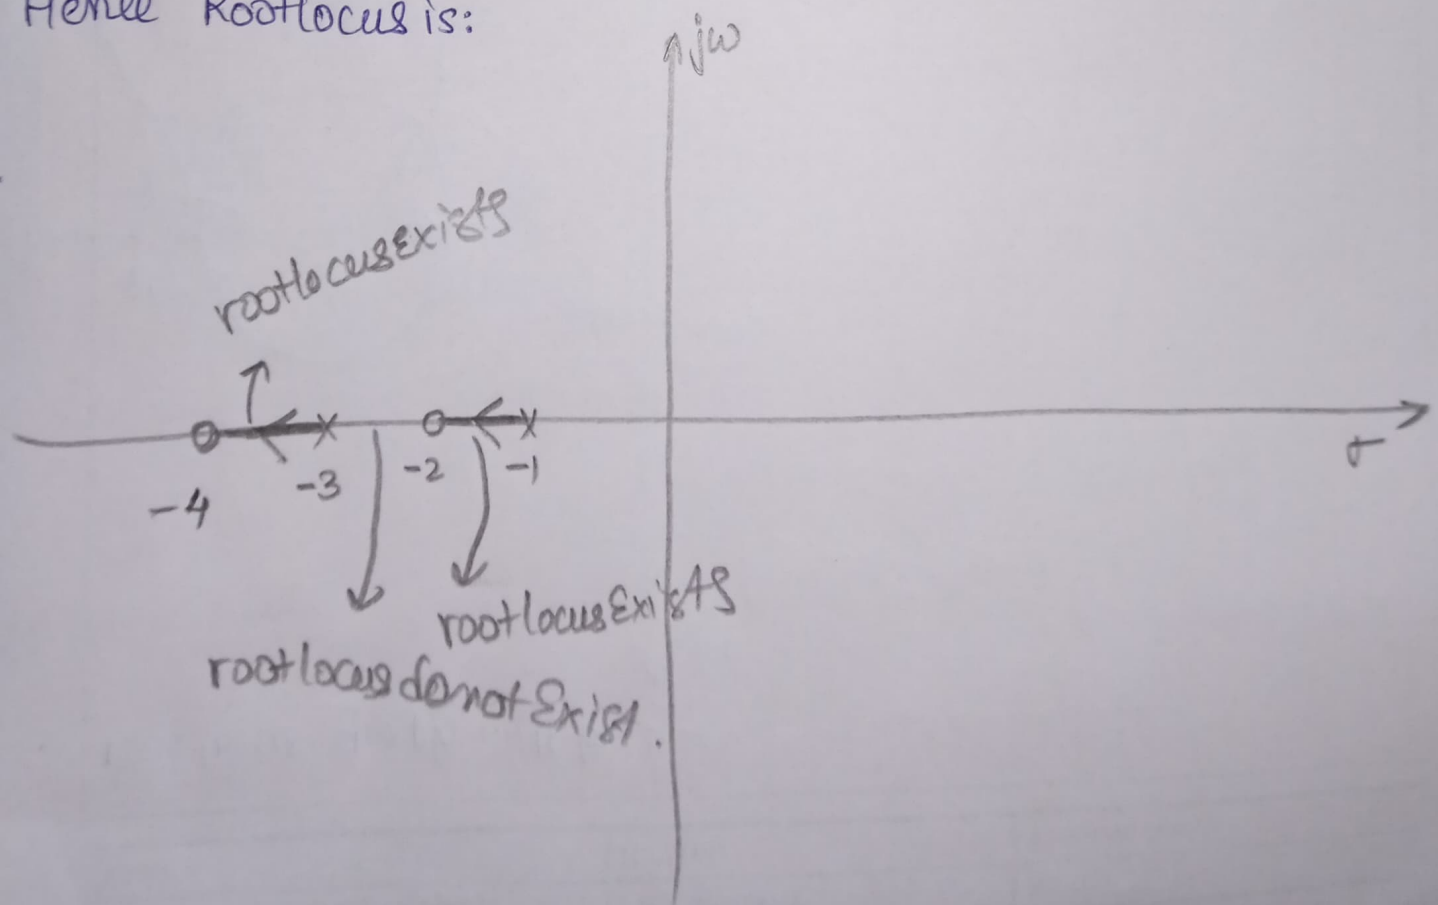 Hence Rootlocus is:
jω
rootlocus exists
-4
-3
-2
-1
σ
rootlocus Exists
rootlocus donot Exist.